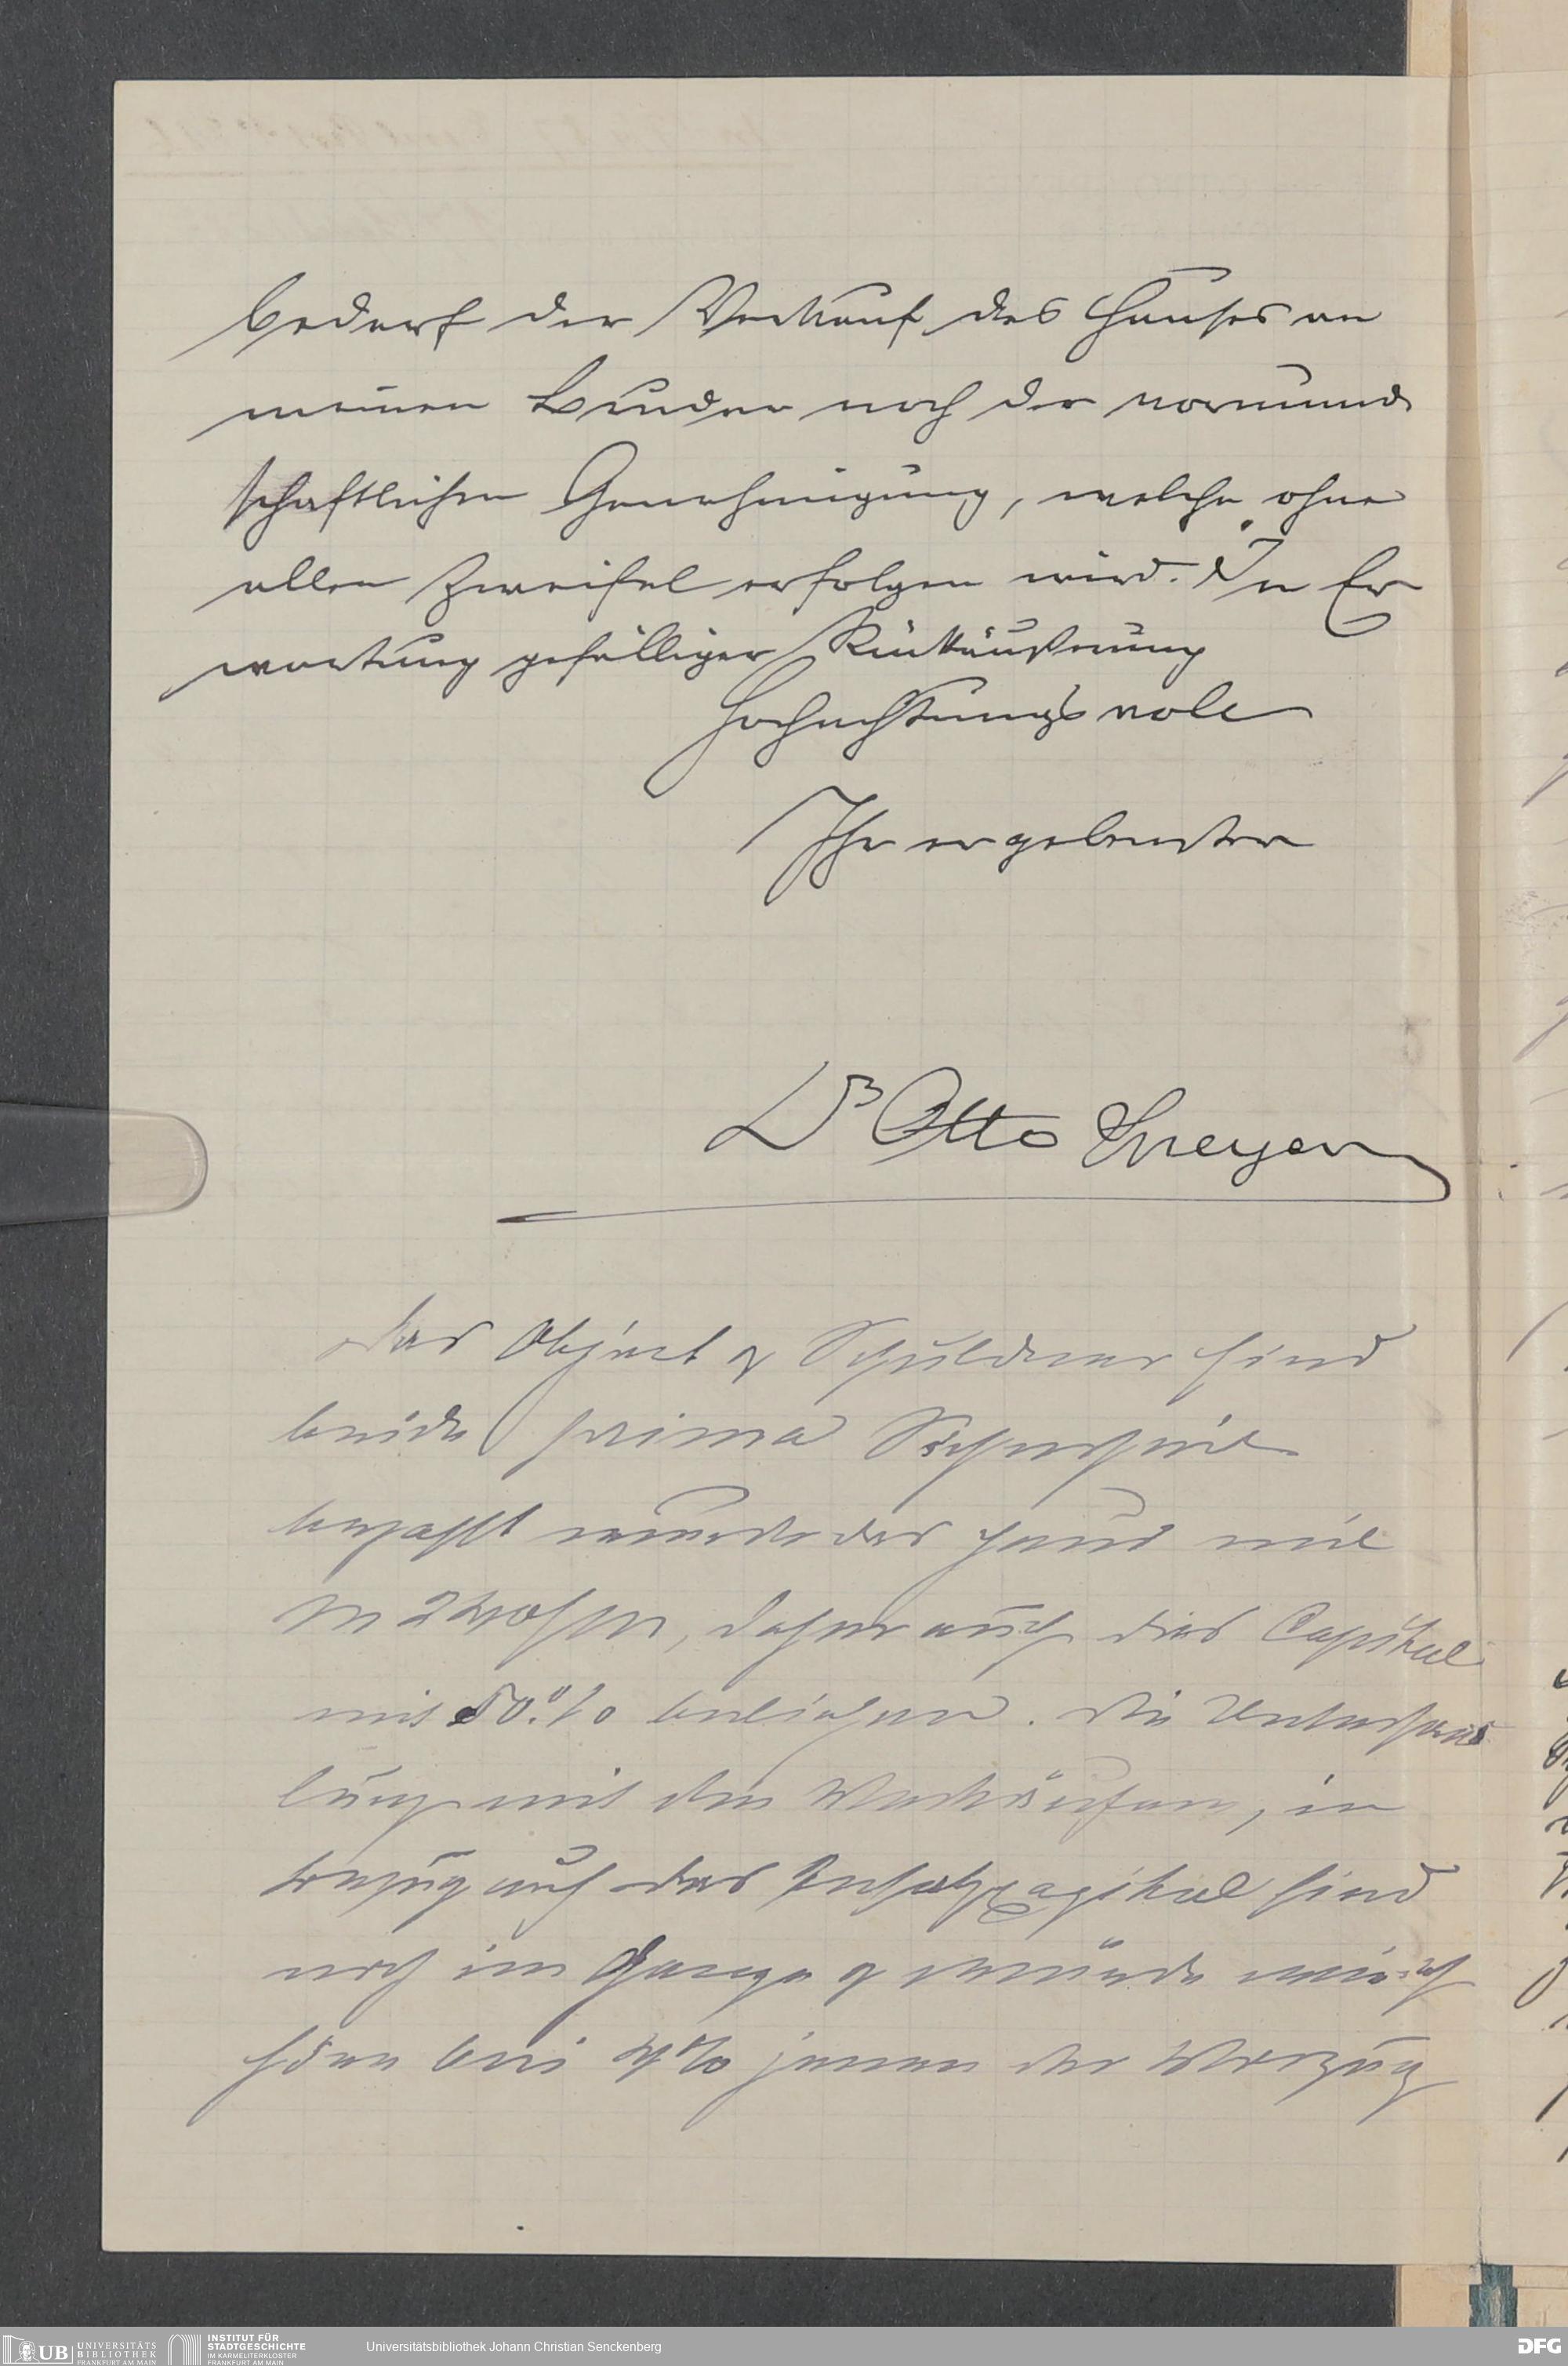 bedarf der Verkauf des Hauses an
meinen Bruder noch der vormund
schaftlichen Genehmigung, welche ohne
allen Zweifel erfolgen wird. In Er
wartung gefälliger Rückäußerung
Hochachtungsvoll
Ihr ergebenster
Dr Otto Speyer
Das Object & Schuldner sind
beide prima
bezahlt wurde das Haus mit
daher auch das Capital
mit 50% beliehen. Die Unterhand
lung mit den Verkäufern, in
bezug auf das Insatzcapital sind
noch im Gange & würde
bei 4% jenen der Vorzug
UB UNIVERSITÄTS
BIBLIOTHEK
FRANKFURT AM MAIN
INSTITUT FÜR
STADTGESCHICHTE
IM KARMELITERKLOSTER
FRANKFURT AM MAIN
Universitätsbibliothek Johann Christian Senckenberg
DFG